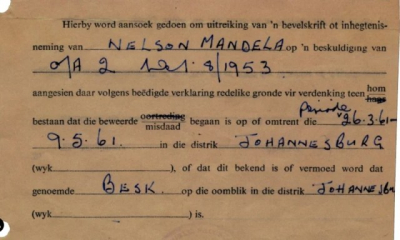 Hierby word aansoek gedoen om uitreiking van 'n bevelskrift ot inhegtenis-
neming van NELSON MANDELA op 'n beskuldiging van
O/A 2 Wet 8/1953
aangesien daar volgens beëdigde verklaring redelike gronde vir verdenking teen hom
haar
bestaan dat die beweerde oortreding
misdaad begaan is op of omtrent die periode 26.3.61-
9.5.61. in die distrik JOHANNESBURG
(wyk), of dat dit bekend is of vermoed word dat
genoemde BESK. op die oomblik in die distrik JOHANNESBU
(wyk) is.